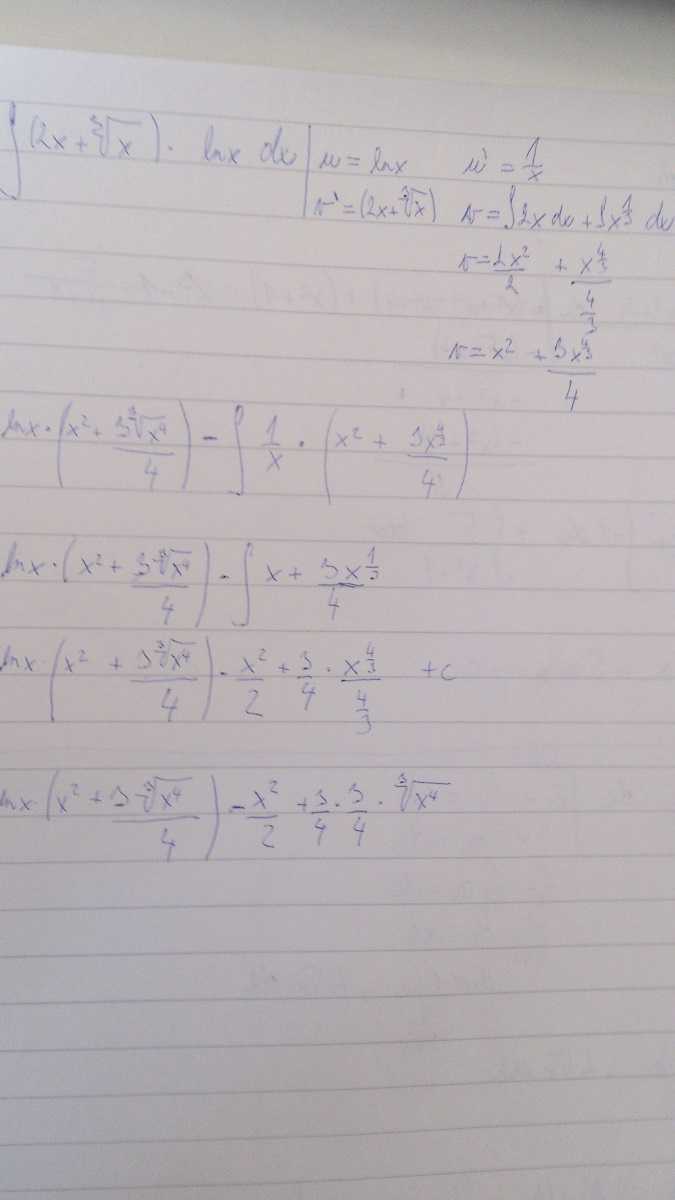 ∫(2x + ∛x) · lnx dx | u = lnx   u' = 1/x
v' = (2x + ∛x)   v = ∫2x dx + ∫x^(1/3) dx
v = 2x²/2 + x^(4/3)/(4/3)
v = x² + 3x^(4/3)/4
lnx · (x² + 3∛x⁴/4) - ∫ 1/x · (x² + 3x^(4/3)/4)
lnx · (x² + 3∛x⁴/4) - ∫ x + 3x^(1/3)/4
lnx · (x² + 3∛x⁴/4) - x²/2 + 3/4 · x^(4/3)/(4/3) + c
lnx · (x² + 3∛x⁴/4) - x²/2 + 3/4 · 3/4 · ∛x⁴